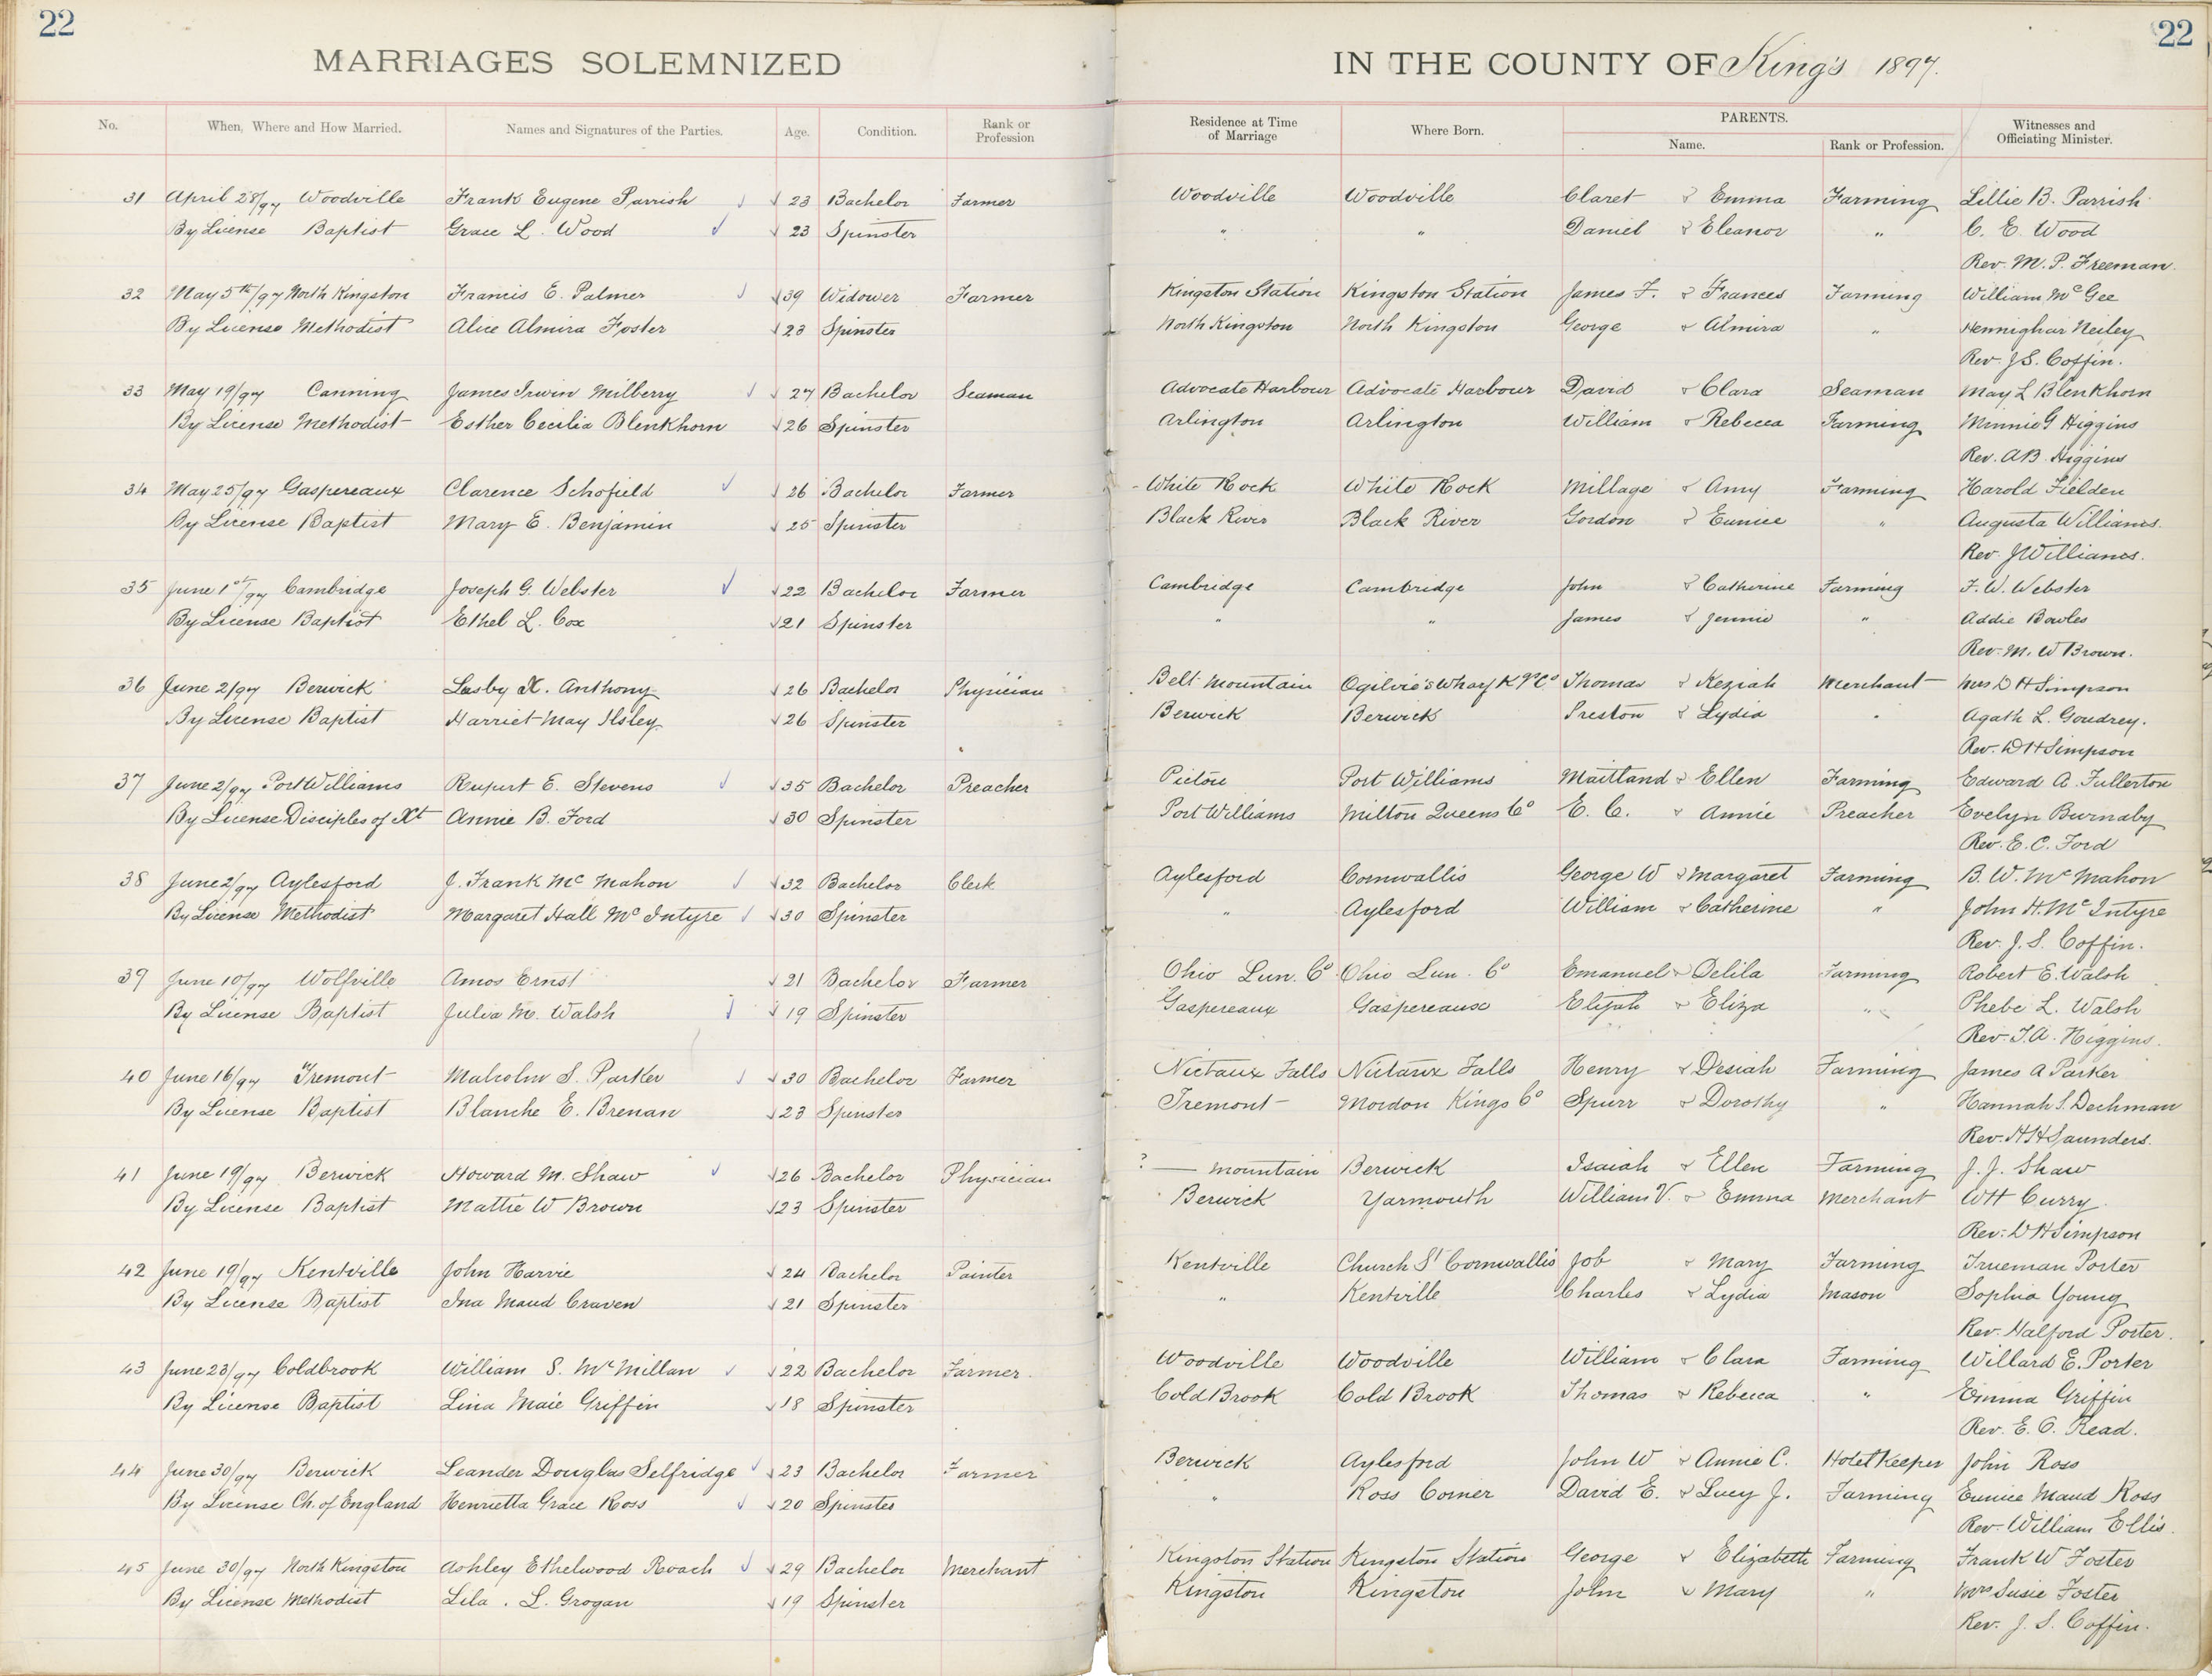 22
22
MARRIAGES SOLEMNIZED IN THE COUNTY OF King's 1897.
No. When, Where and How Married. Names and Signatures of the Parties. Age. Condition. Rank or Profession Residence at Time of Marriage Where Born. PARENTS. Name. Rank or Profession. Witnesses and Officiating Minister.
31 April 28/97 Woodville Frank Eugene Parrish 23 Bachelor Farmer Woodville Woodville Claret & Emma Farming Lillie B. Parrish
By License Baptist Grace L. Wood 23 Spinster " " Daniel & Eleanor " C. E. Wood
Rev. M. P. Freeman.
32 May 5th/97 North Kingston Francis E. Palmer 39 Widower Farmer Kingston Station Kingston Station James F. & Frances Farming William McGee
By License Methodist Alice Almira Foster 23 Spinster North Kingston North Kingston George & Almira " Hennighar Neiley
Rev. J S. Coffin.
33 May 19/97 Canning James Irwin Milberry 27 Bachelor Seaman Advocate Harbour Advocate Harbour David & Clara Seaman May L Blenkhorn
By License Methodist Esther Cecilia Blenkhorn 26 Spinster Arlington Arlington William & Rebecca Farming Minnie G Higgins
Rev. A B Higgins
34 May 25/97 Gaspereaux Clarence Schofield 26 Bachelor Farmer White Rock White Rock Millage & Amy Farming Harold Fielden
By License Baptist Mary E. Benjamin 25 Spinster Black River Black River Gordon & Eunice " Augusta Williams.
Rev. J Williams.
35 June 1st/97 Cambridge Joseph G. Webster 22 Bachelor Farmer Cambridge Cambridge John & Catherine Farming F. W. Webster
By License Baptist Ethel L. Cox 21 Spinster " " James & Jennie " Addie Bowles
Rev. M. W Brown.
36 June 2/97 Berwick Lesby X. Anthony 26 Bachelor Physician Belt. Mountain Ogilvie's Wharf K gs Co Thomas & Keziah Merchant Mrs D H Simpson
By License Baptist Harriet May Ilsley 26 Spinster Berwick Berwick Preston & Lydia " Agath L. Goudrey.
Rev. D H Simpson
37 June 2/97 Port Williams Rupert E. Stevens 35 Bachelor Preacher Pictou Port Williams Maitland & Ellen Farming Edward A. Fullerton
By License Disciples of Xt Annie B. Ford 30 Spinster Port Williams Milton Queens Co E. C. & Annie Preacher Evelyn Burnaby
Rev. E. C. Ford
38 June 2/97 Aylesford J. Frank Mc Mahon 32 Bachelor Clerk Aylesford Cornwallis George W & Margaret Farming B. W. Mc Mahon
By License Methodist Margaret Hall Mc Intyre 30 Spinster " Aylesford William & Catherine " John H. Mc Intyre
Rev. J. S. Coffin.
39 June 10/97 Wolfville Amos Ernst 21 Bachelor Farmer Ohio Lun. Co. Ohio Lun. Co Emanuel & Delila Farming Robert E. Walsh
By License Baptist Julia M. Walsh 19 Spinster Gaspereaux Gaspereaux Elijah & Eliza " Phebe L. Walsh
Rev. T. A. Higgins.
40 June 16/97 Tremont Malcolm S. Parker 30 Bachelor Farmer Nictaux Falls Nictaux Falls Henry & Desiah Farming James A Parker
By License Baptist Blanche E. Brenan 23 Spinster Tremont Mordon Kings Co Spurr & Dorothy " Hannah S. Dechman
Rev. H H Saunders.
41 June 19/97 Berwick Howard M. Shaw 26 Bachelor Physician ? — Mountain Berwick Isaiah & Ellen Farming J. J. Shaw
By License Baptist Mattie W Brown 23 Spinster Berwick Yarmouth William V. & Emma Merchant W H Curry.
Rev. D H Simpson
42 June 19/97 Kentville John Harvie 24 Bachelor Painter Kentville Church St Cornwallis Job & Mary Farming Trueman Porter
By License Baptist Ina Maud Craven 21 Spinster " Kentville Charles & Lydia Mason Sophia Young
Rev. Halford Porter.
43 June 23/97 Coldbrook William S. McMillan 22 Bachelor Farmer. Woodville Woodville William & Clara Farming Willard E. Porter
By License Baptist Lina Maie Griffin 18 Spinster Cold Brook Cold Brook Thomas & Rebecca " Emma Griffin
Rev. E. O. Read.
44 June 30/97 Berwick Leander Douglas Selfridge 23 Bachelor Farmer Berwick Aylesford John W & Annie C. Hotel Keeper John Ross
By License Ch. of England Henrietta Grace Ross 20 Spinster " Ross Corner David E. & Lucy J. Farming Eunice Maud Ross
Rev. William Ellis.
45 June 30/97 North Kingston Ashley Ethelwood Roach 29 Bachelor Merchant Kingston Station Kingston Station George & Elizabeth Farming Frank W Foster
By License Methodist Lila. L. Grogan 19 Spinster Kingston Kingston John & Mary " Mrs Susie Foster
Rev. J. S. Coffin.